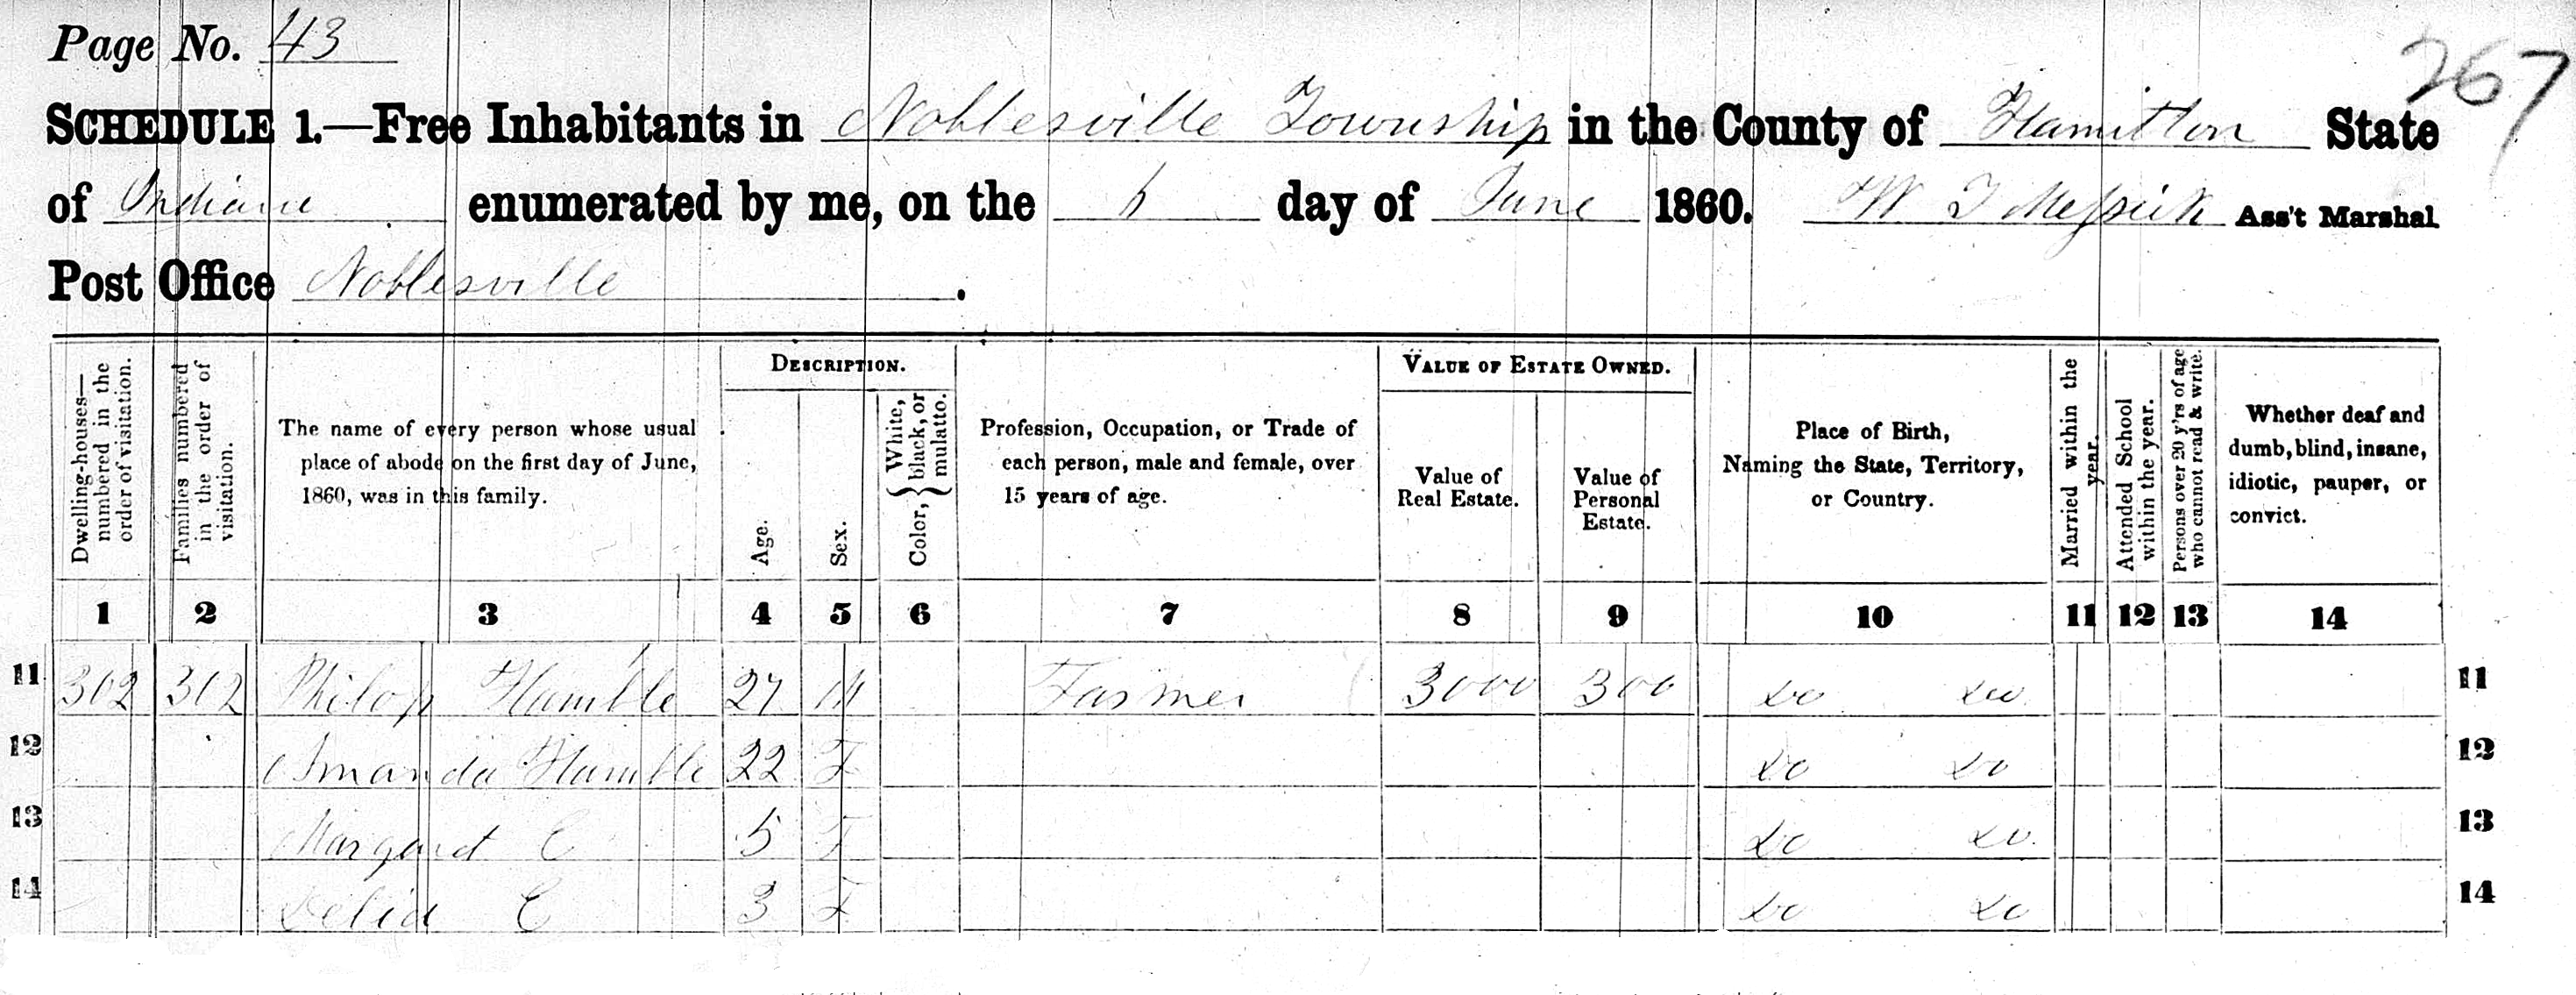 Page No. 43
267
SCHEDULE 1.—Free Inhabitants in Noblesville Township in the County of Hamilton State
of Indiana enumerated by me, on the 6 day of June 1860. W T Messick Ass't Marshal
Post Office Noblesville.
DESCRIPTION.
VALUE OF ESTATE OWNED.
Dwelling-houses—numbered in the order of visitation.
Families numbered in the order of visitation.
The name of every person whose usual
place of abode on the first day of June,
1860, was in this family.
Age.
Sex.
Color, { White, black, or mulatto. }
Profession, Occupation, or Trade of
each person, male and female, over
15 years of age.
Value of
Real Estate.
Value of
Personal
Estate.
Place of Birth,
Naming the State, Territory,
or Country.
Married within the year.
Attended School within the year.
Persons over 20 y'rs of age who cannot read & write.
Whether deaf and
dumb, blind, insane,
idiotic, pauper, or
convict.
1 2 3 4 5 6 7 8 9 10 11 12 13 14
11 302 312 Philop Humble 27 M Farmer 3000 300 Do Do 11
12 Amanda Humble 22 F Do Do 12
13 Margaret C 5 F Do Do 13
14 Delia C 3 F Do Do 14